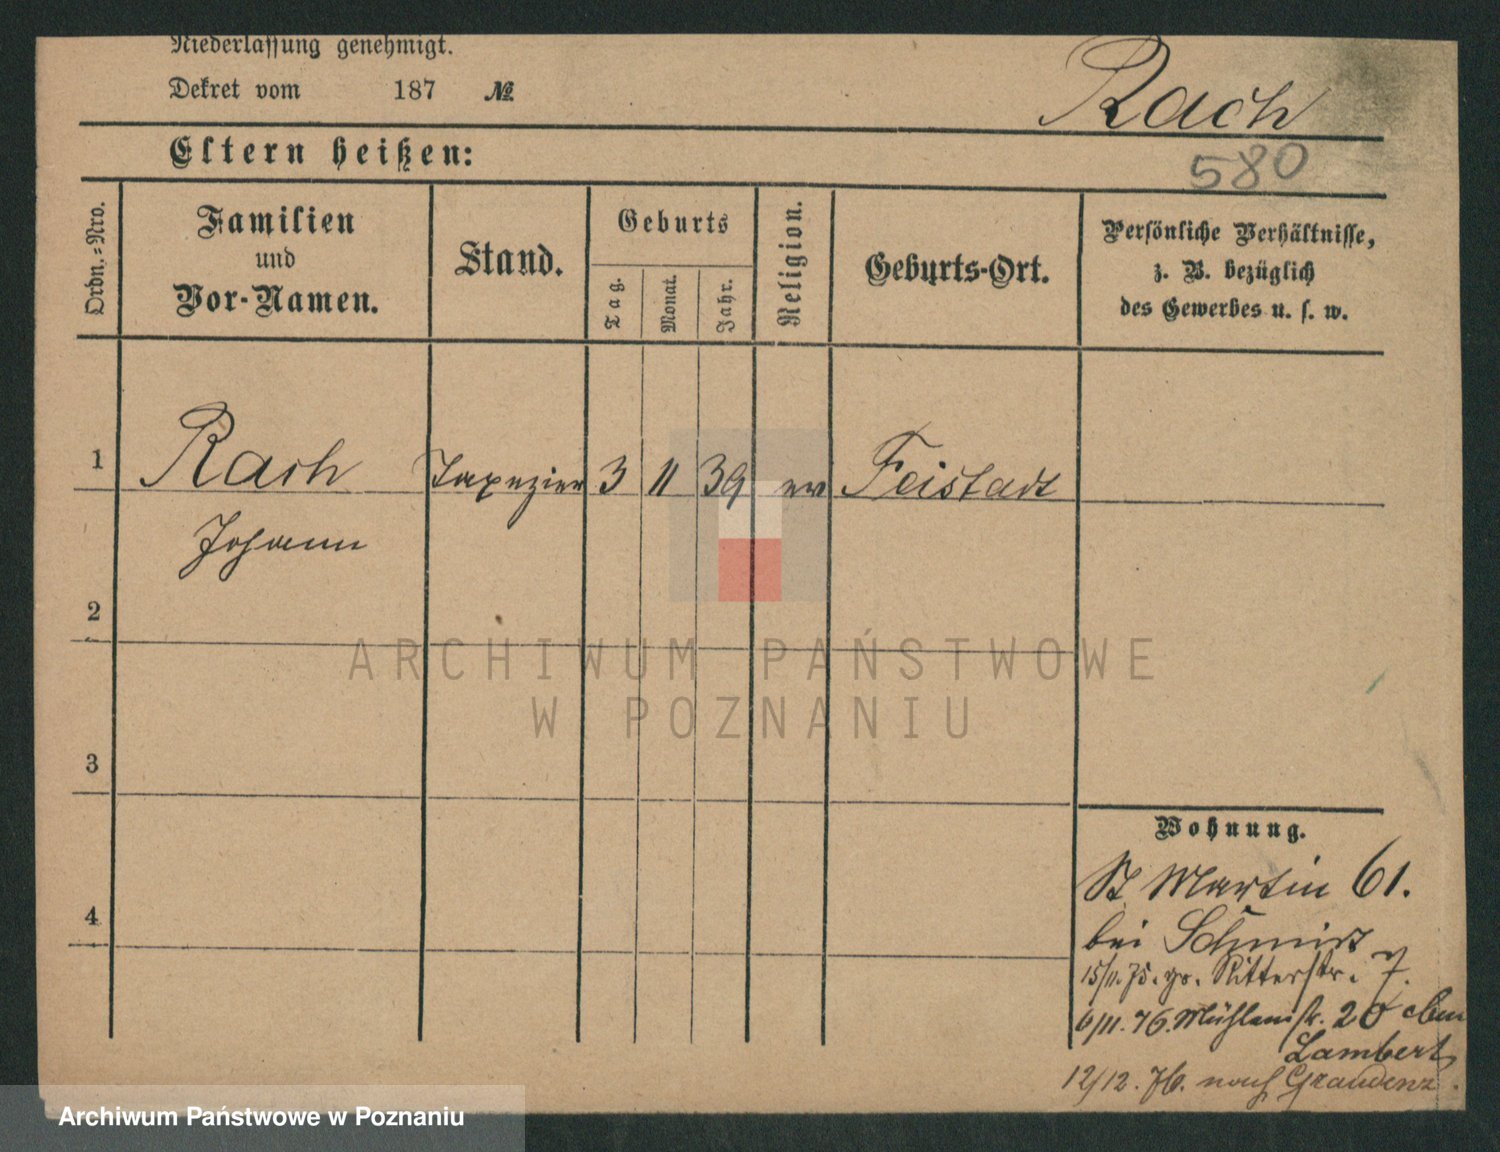 Niederlassung genehmigt.
Dekret vom 187 №
Rach
580
Eltern heißen:
Ordn.-Nro.
Familien
und
Vor-Namen.
Stand.
Geburts
Tag.
Monat.
Jahr.
Religion.
Geburts-Ort.
Persönliche Verhältnisse,
z. B. bezüglich
des Gewerbes u. s. w.
1 Rach Tapezier 3 11 39 ev Feistadt
Johann
2
3
4
Wohnung.
St Martin 61.
bei Schmidt
15/11. 75. gr. Ritterstr. 7.
6/11. 76. Mühlenstr. 20
Lambert
12/12. 76. nach Graudenz.
ARCHIWUM PAŃSTWOWE
W POZNANIU
Archiwum Państwowe w Poznaniu